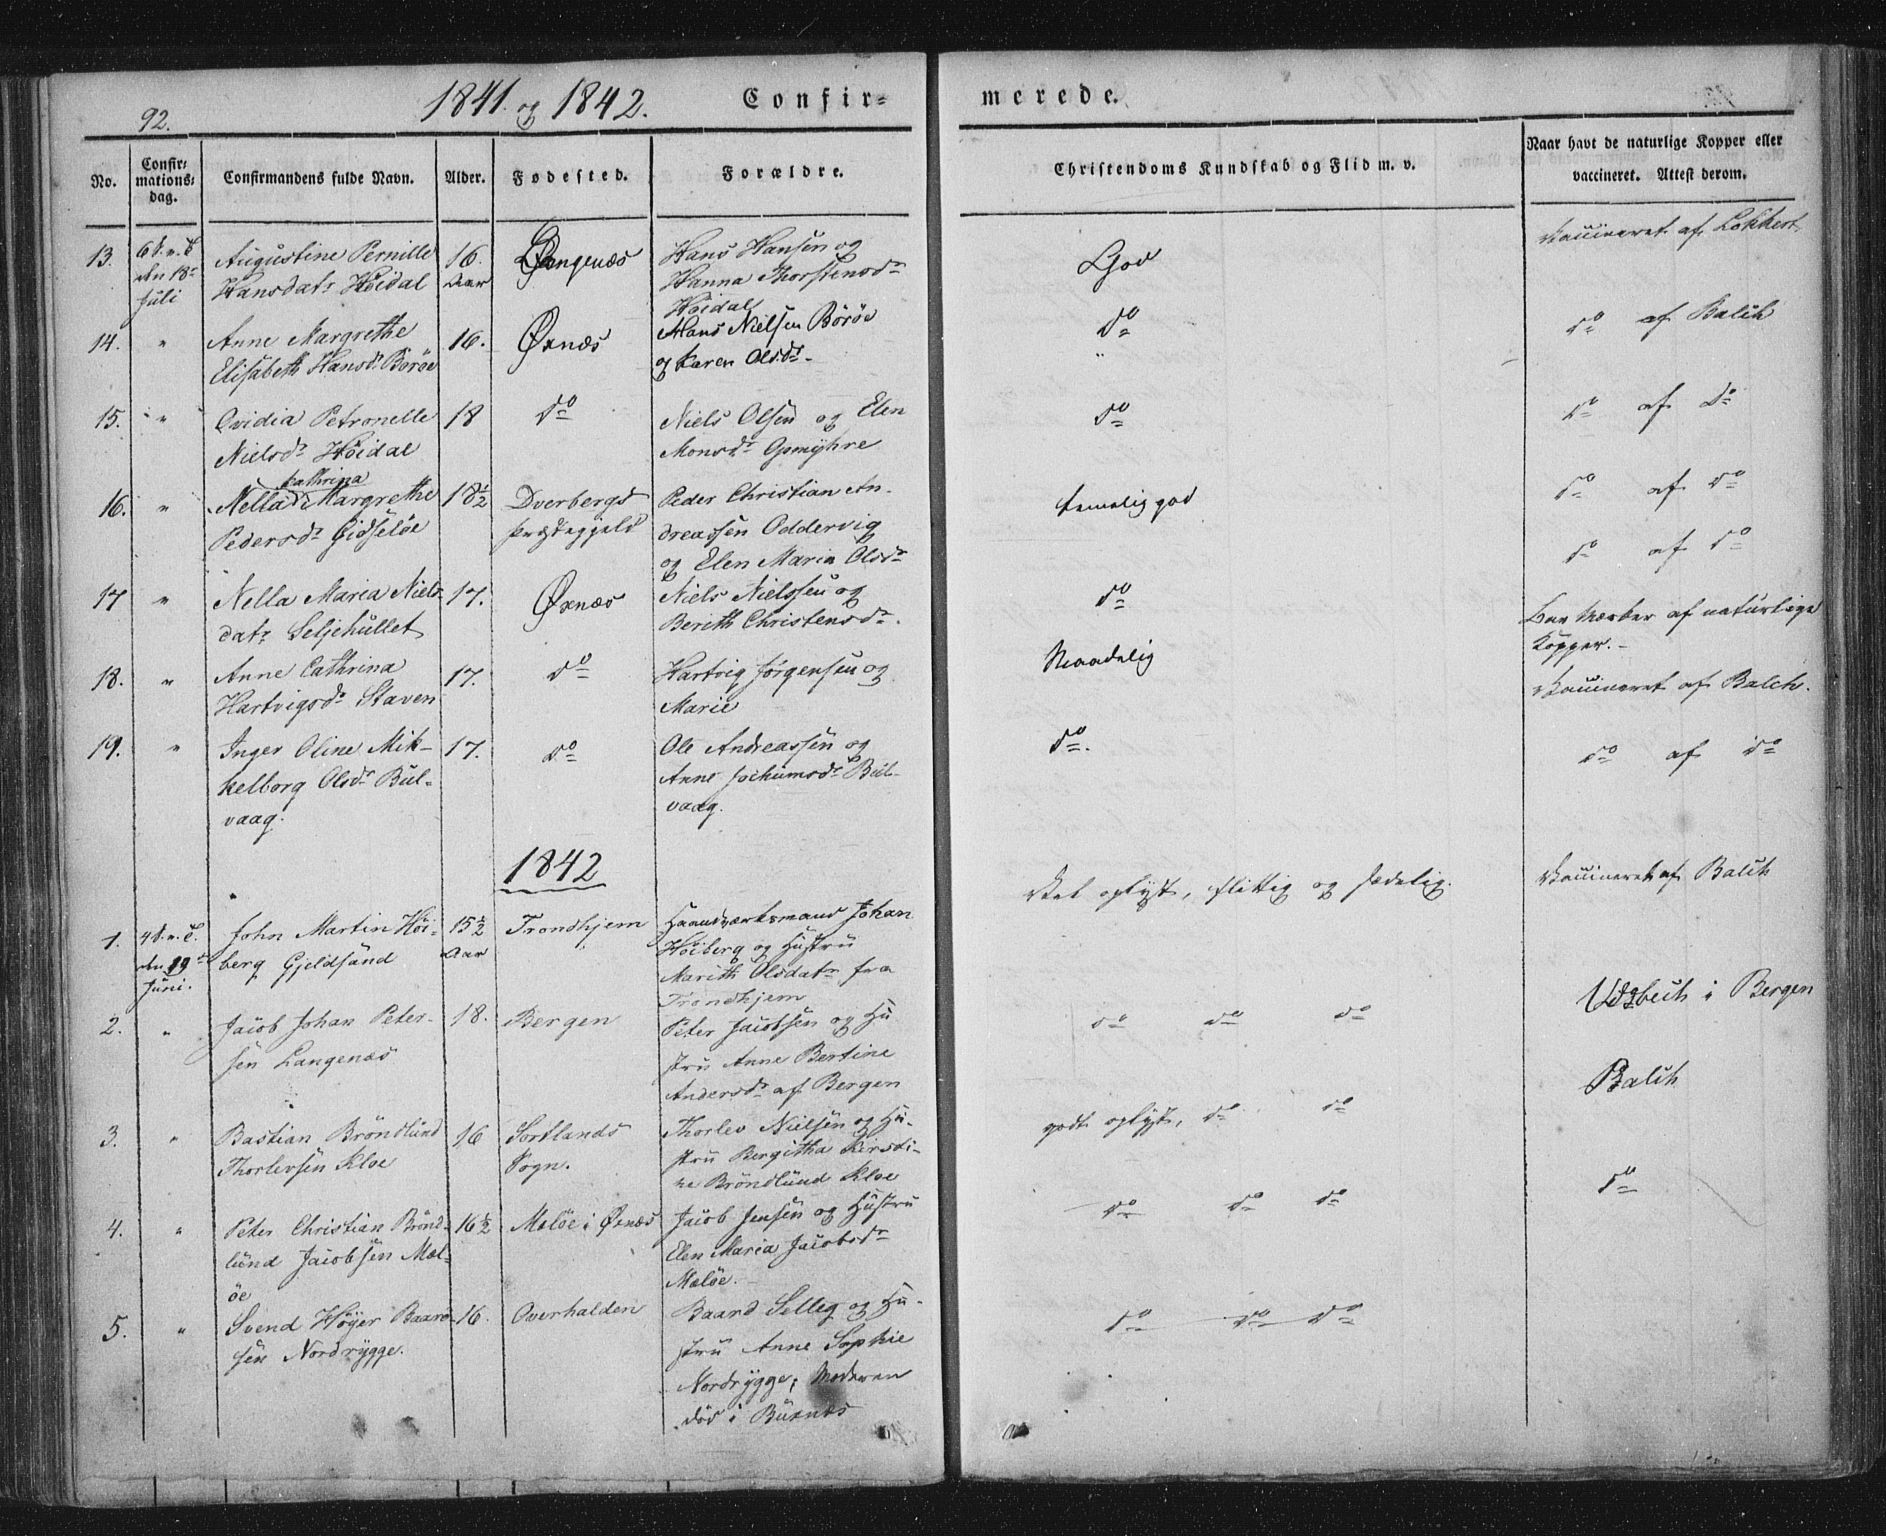 92.
1841. og 1842.
Confir=
merede.
No.
Confir=
mations=
dag.
Confirmandens fulde Navn.
Alder.
Fødested.
Forældre.
Christendoms Kundskab og Flid m. v.
Naar havt de naturlige Kopper eller
vaccineret. Attest derom.
13.
den 18de
Juli
Augustine Pernille
Hansdatr Höidal
16.
Aar
Hans Hansen og
Hanna Thorstensdr
Höidal
God
Vaccineret af Lökkert
14.
"
Anne Margrethe
Elisabeth Hansdr Börøe
16.
Øxnæs
Hans Nielsen Börøe
og Karen Olsdr
do
do af Balch
15.
"
Ovidia Petronelle
Nielsdr Höidal
18
do
Niels Olsen og Elen
Monsdr
do
do af do
16.
"
Kathrina
Nella Margrethe
Pedersdr Gidselöe
18½
Dverbergs
Præstegjeld
Peder Christian An-
dreassen Oddervig
og Elen Maria Olsdr
temelig god
do af do
17
"
Nella Maria Niels-
datr Seljehullet
17.
Øxnæs
Niels Nielssen og
Berith Christensdr.
do
do af do
18.
"
Anne Cathrina
Hartvigsdr Staven
17.
do
Hartvig Jørgensen og
Marie
Maadelig
Har Mærker af naturlige
Kopper.-
19.
"
Inger Oline Mik-
kelborg Olsdr Bul-
vaag.
17.
do
Ole Andreassen og
Anne Jochumsdr Bul-
vaag.
do.
Vaccineret af Balch.
do af do
1842
1.
4 S. e. T.
den 19de
Juni.
John Martin Höi-
berg Gjeldsund
15½
Aar
Trondhjem
Haandværksmand Johan
Höiberg og Hustru
Marith Olsdatr fra
Trondhjem
Vel oplyst, flittig og sædelig.
Vaccineret af Balch
2.
"
Jacob Johan Peter-
sen Langenæs
18.
Bergen
Peter Jacobsen og Hu
stru Anne Bertine
Andersdr af Bergen
do do do
i Bergen
3.
"
Bastian Bröndlund
Thorlevsen Kloe
16
Sortlands
Sogn.
Thorlev Nielsen og Hu-
stru Bergitha Kirsti-
ne Bröndlund Kloe
godt oplyst, do do
Balch
4.
"
Peter Christian Brönd-
lund Jacobsen Mæl-
öe
16½
Mælöe i Øxnæs
Jacob Jensen og Hustru
Elen Maria Jacobsdr
Mælöe.
do do do
do
5.
"
Svend Höyer Baard-
sen Nordrygge.
16.
Overhalden
Baard Selleg og Hu-
stru Anne Sophie
Nordrygge; Moderen
död i Buxnæs
do do do